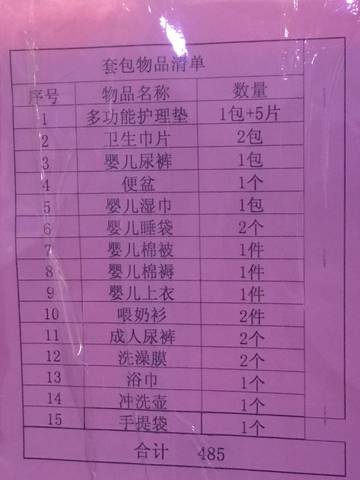 套包物品清单
序号 物品名称 数量
1 多功能护理垫 1包+5片
2 卫生巾片 2包
3 婴儿尿裤 1包
4 便盆 1个
5 婴儿湿巾 1包
6 婴儿睡袋 2个
7 婴儿棉被 1件
8 婴儿棉褥 1件
9 婴儿上衣 1件
10 喂奶衫 2件
11 成人尿裤 2个
12 洗澡膜 2个
13 浴巾 1个
14 冲洗壶 1个
15 手提袋 1个
合计 485